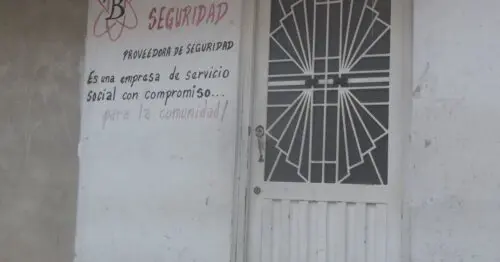 B
SEGURIDAD
PROVEEDORA DE SEGURIDAD
Es una empresa de servicio
social con compromiso...
para la comunidad!